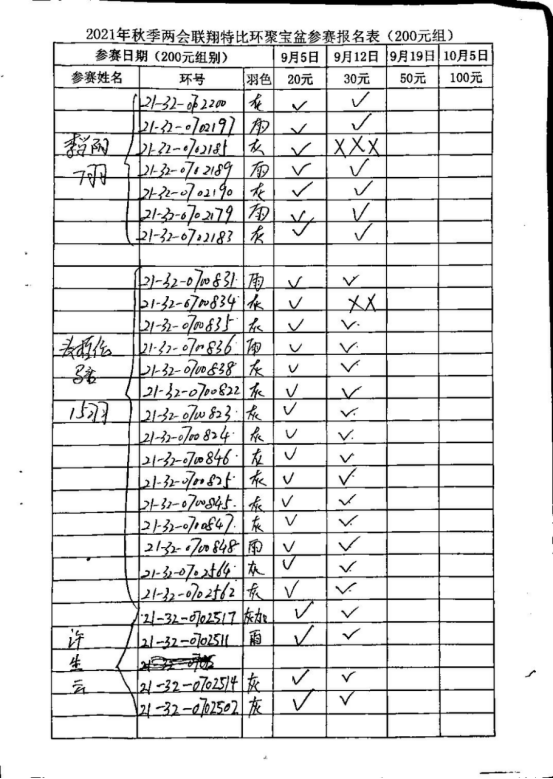 2021年秋季两会联翔特比环聚宝盆参赛报名表（200元组）
参赛日期（200元组别） 9月5日 9月12日 9月19日 10月5日
参赛姓名 环号 羽色 20元 30元 50元 100元
21-32-072200 灰 ✓ ✓
21-32-0702197 雨 ✓ ✓
21-32-0702185 灰 ✓ XXX
7羽 21-32-0702189 雨 ✓ ✓
21-32-0702190 灰 ✓ ✓
21-32-0702179 雨 ✓ ✓
21-32-0702183 灰 ✓ ✓
21-32-0700831 雨 ✓ ✓
21-32-0700834 灰 ✓ XX
21-32-0700835 灰 ✓ ✓
21-32-0700836 雨 ✓ ✓
21-32-0700838 灰 ✓ ✓
21-32-0700822 灰 ✓ ✓
15羽 21-32-0700823 灰 ✓ ✓
21-32-0700824 灰 ✓ ✓
21-32-0700846 灰 ✓ ✓
21-32-0700825 灰 ✓ ✓
21-32-0700845 灰 ✓ ✓
21-32-0700847 灰 ✓ ✓
21-32-0700848 雨 ✓ ✓
21-32-0702564 灰 ✓ ✓
21-32-0702562 灰 ✓ ✓
21-32-0702517 ✓ ✓
许 21-32-0702511 雨 ✓ ✓
生
云 21-32-0702514 灰 ✓ ✓
21-32-0702502 灰 ✓ ✓